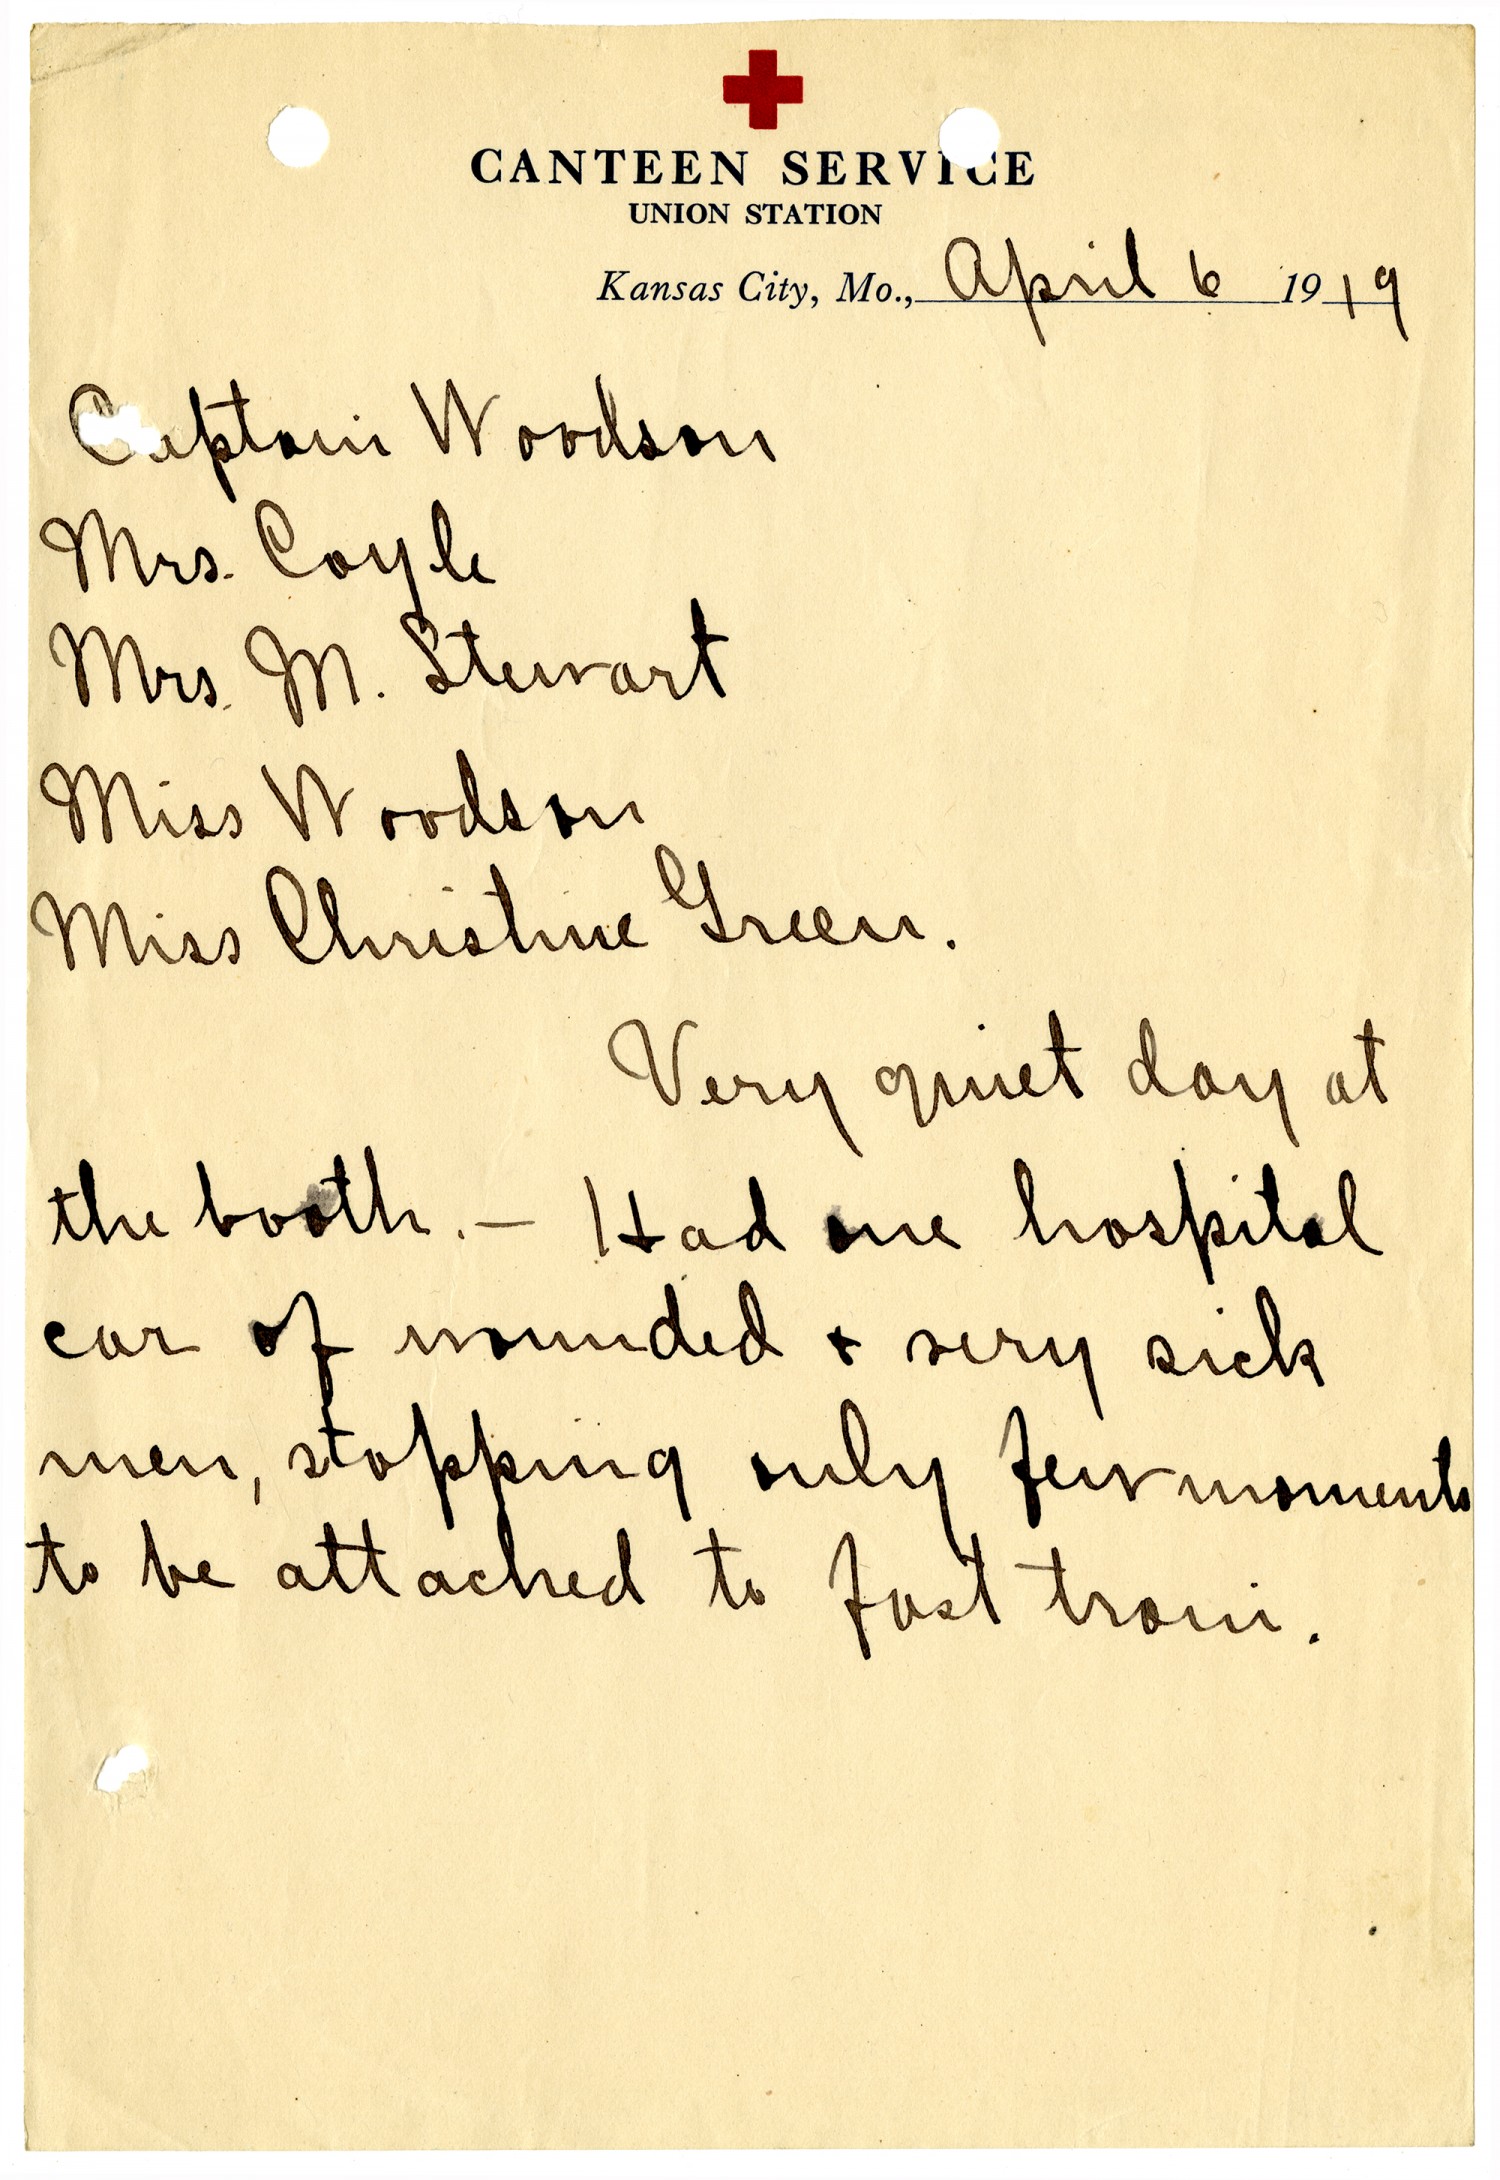 CANTEEN SERVICE
UNION STATION
Kansas City, Mo., April 6 1919
Captain Woodson
Mrs. Coyle
Mrs. M. Stewart
Miss Woodson
Miss Christine Green.
Very quiet day at
the booth. — Had one hospital
car of wounded & very sick
men, stopping only few moments
to be attached to fast train.